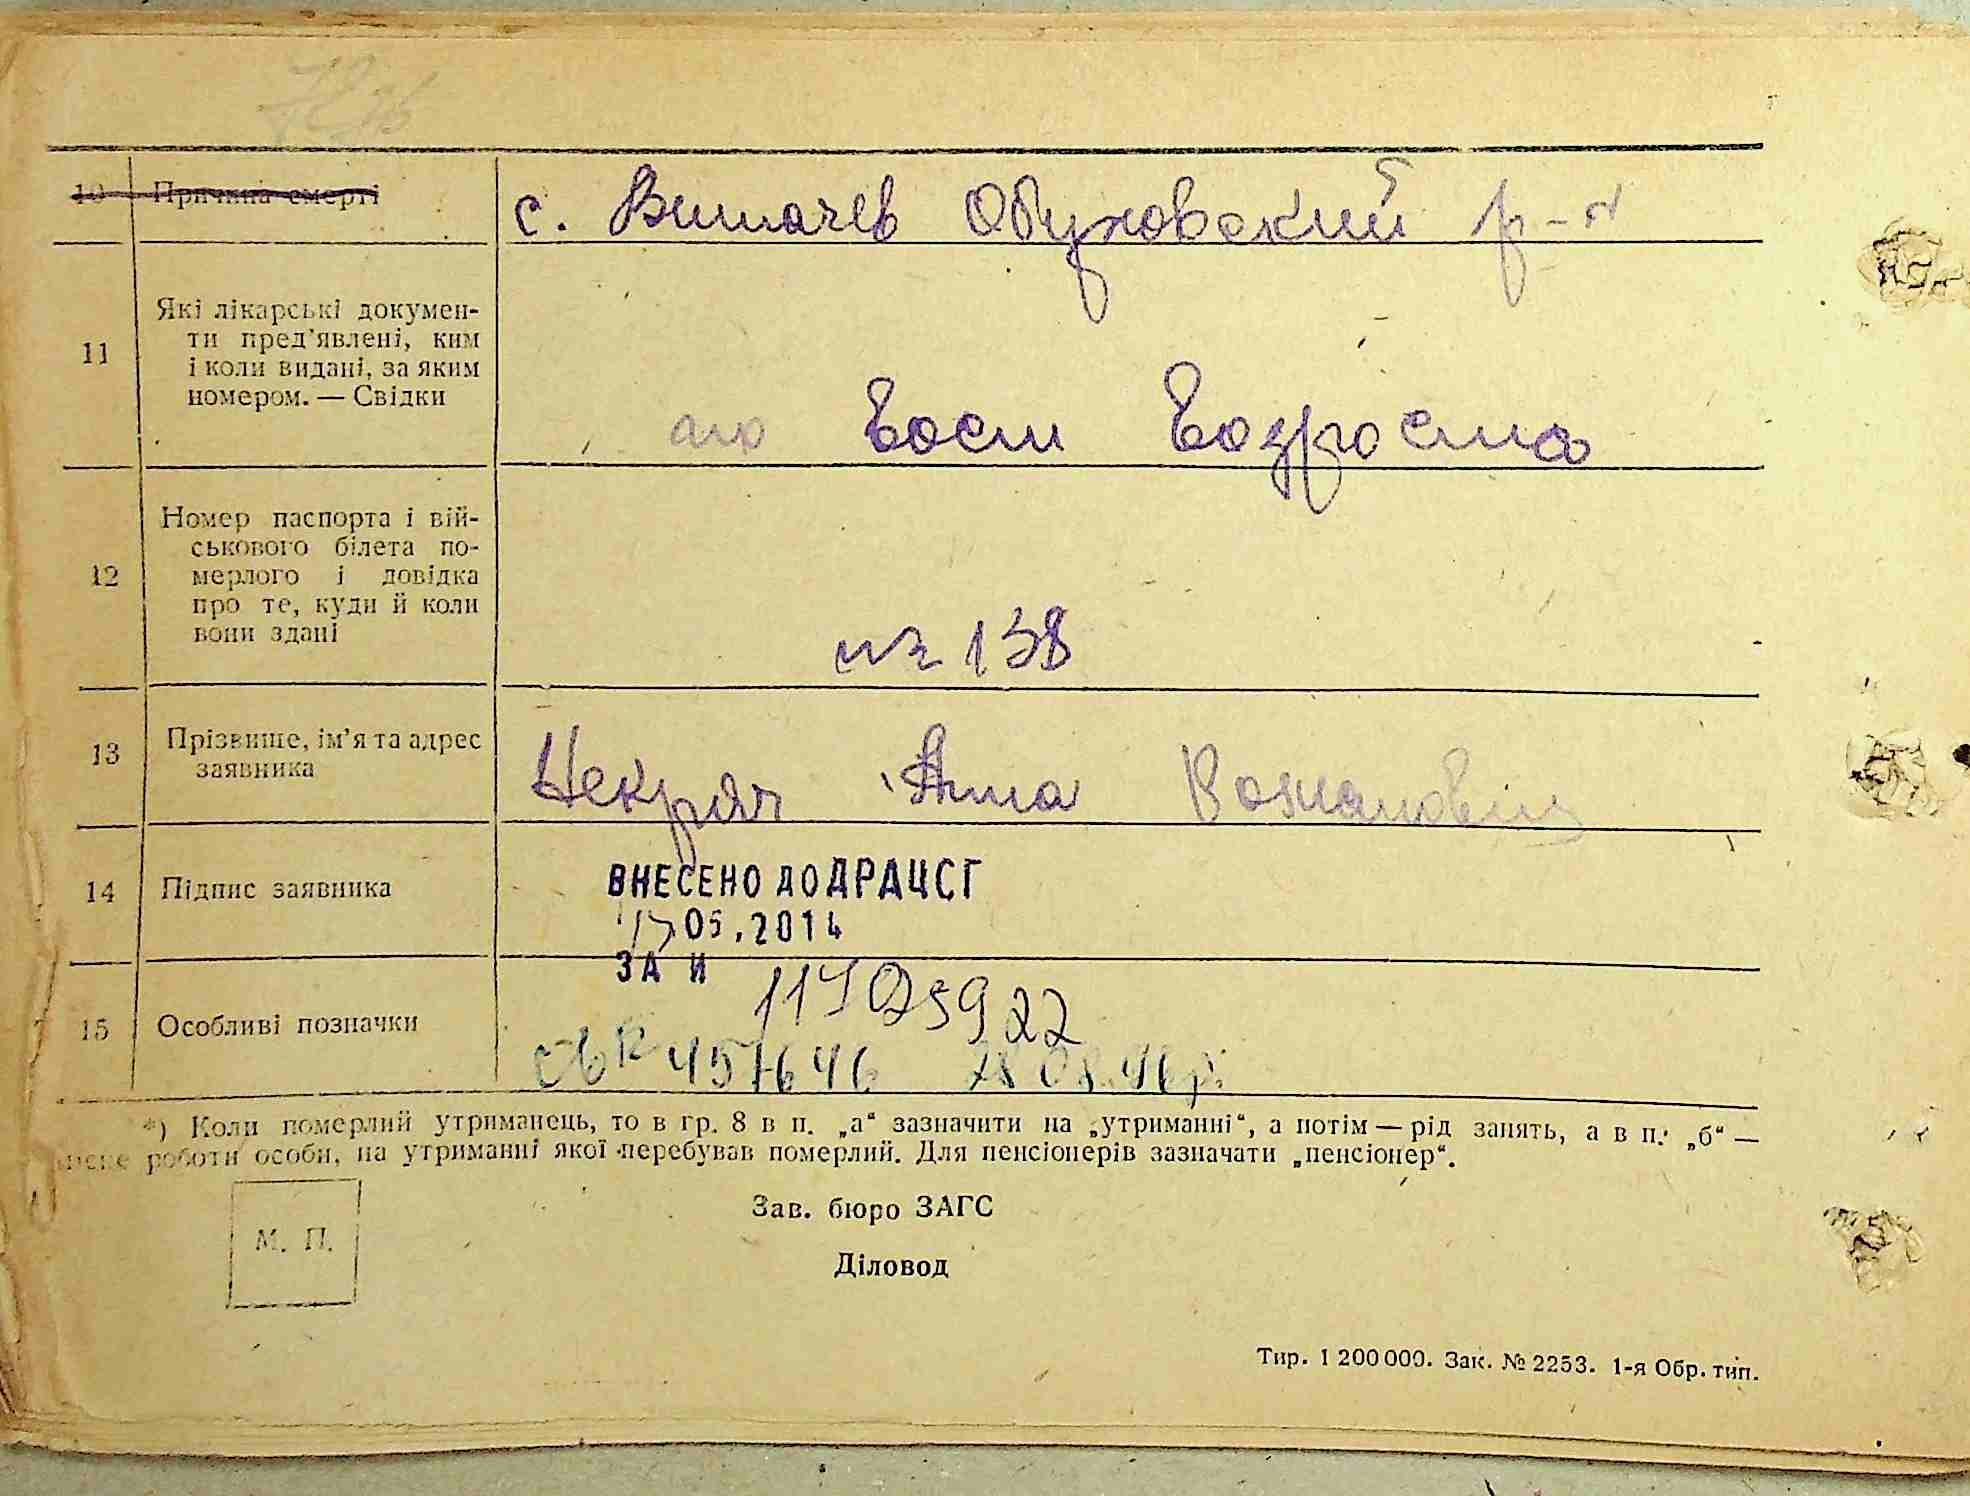 10 Причина смерті с. Витачев Обуховский р-н
11 Які лікарські докумен-
ти пред'явлені, ким
і коли видані, за яким
номером. — Свідки
12 Номер паспорта і вій-
ськового білета по-
мерлого і довідка
про те, куди й коли
вони здані
138
13 Прізвище, ім'я та адрес
заявника
Некряч Анна
14 Підпис заявника
ВНЕСЕНО ДО ДРАЦСГ
05.2014
ЗА И
15 Особливі позначки
*) Коли померлий утриманець, то в гр. 8 в п. „а“ зазначити на „утриманні“, а потім — рід занять, а в п. „б“ —
роботи особи, на утриманні якої перебував померлий. Для пенсіонерів зазначати „пенсіонер“.
Зав. бюро ЗАГС
М. П.
Діловод
Тир. 1 200 000. Зак. № 2253. 1-я Обр. тип.